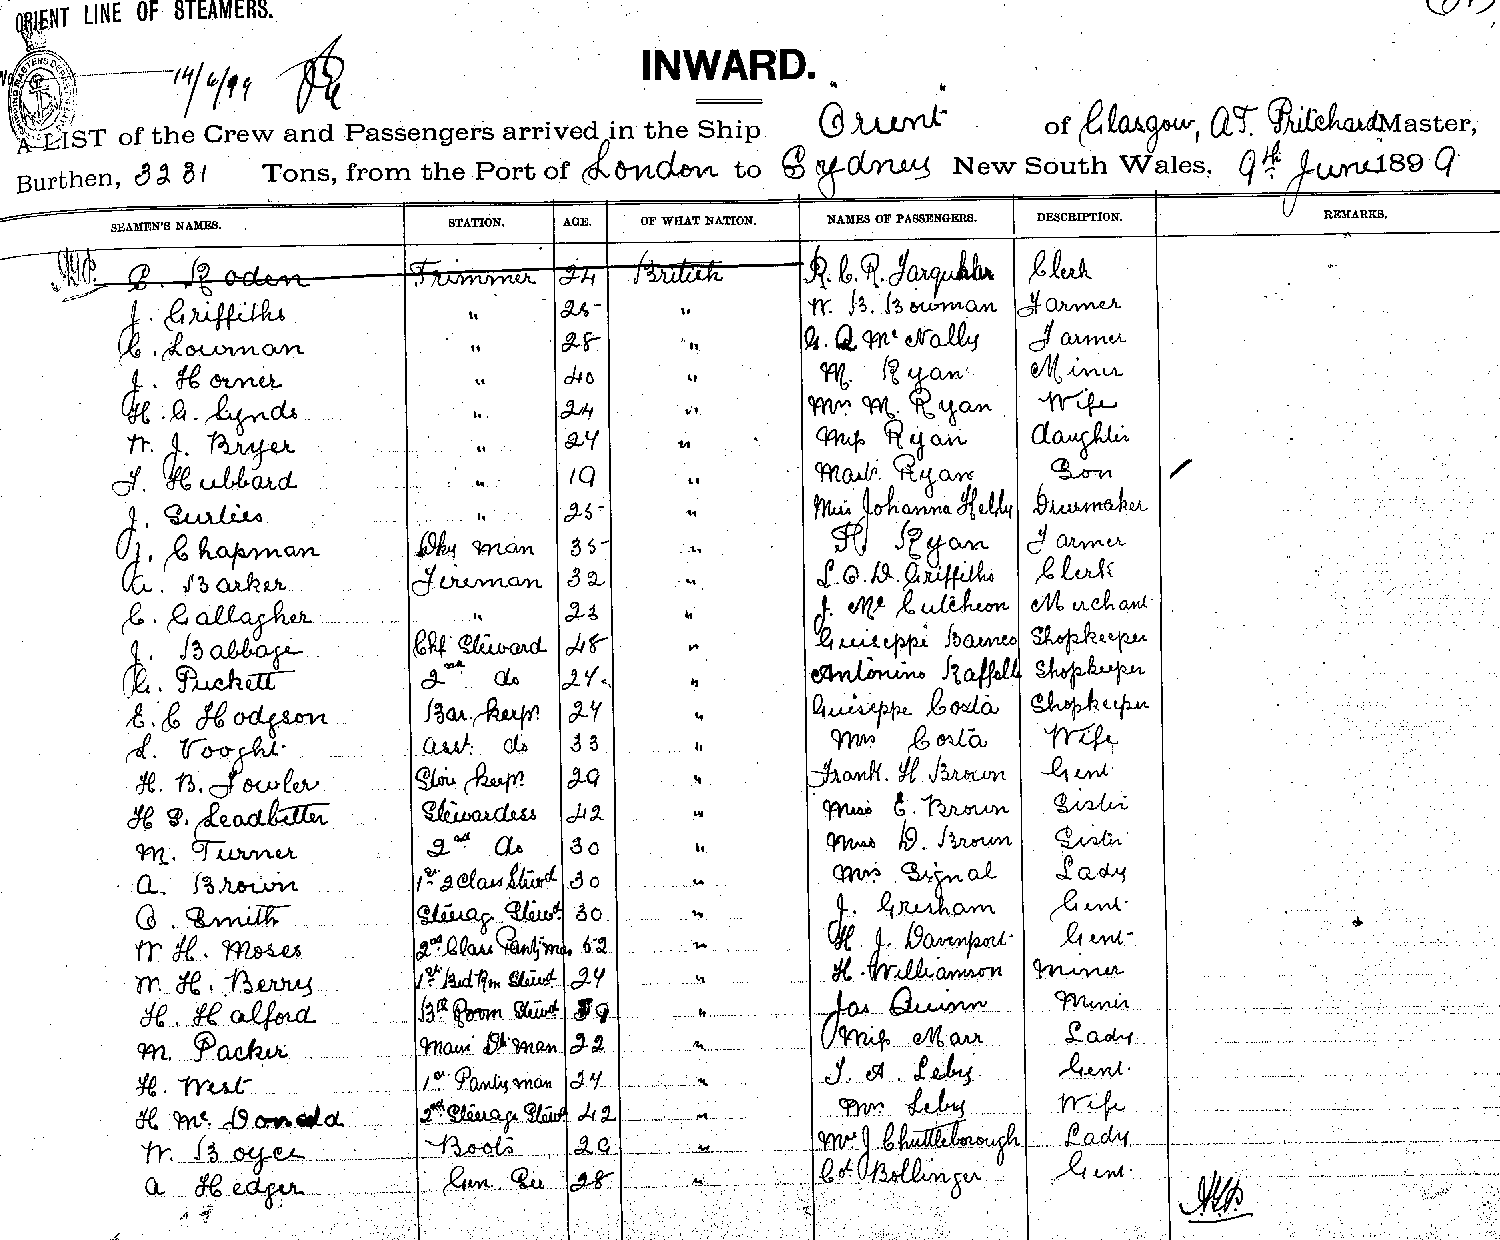 ORIENT LINE OF STEAMERS.
14/6/99
INWARD.
A LIST of the Crew and Passengers arrived in the Ship "Orient" of Glasgow, A.T. Pritchard Master,
Burthen, 3231 Tons, from the Port of London to Sydney New South Wales, 9th June 1899
SEAMEN'S NAMES. STATION. AGE. OF WHAT NATION. NAMES OF PASSENGERS. DESCRIPTION. REMARKS.
Roden Trimmer 24 British R. C. R. Farquhar Clerk
J. Griffiths " 25 " W. B. Bowman Farmer
C. Lowman " 28 " McNally Farmer
J. Horner " 40 " M. Ryan Miner
H. G. Lynds " 24 " Mrs M. Ryan Wife
W. J. Bryer " 24 " Miss Ryan daughter
F. Hubbard " 19 " Mast. Ryan Son
J. Surties " 25 " Miss Johanna Kelly Dressmaker
J. Chapman Dky man 35 " H Ryan Farmer
G. Barker Fireman 32 " L. O. D. Griffiths Clerk
C. Gallagher " 23 " J. McCutcheon Merchant
J. Babbage Chf Steward 48 " Guiseppi Shopkeeper
G. Puckett 2nd do 24 " Antonino Raffell Shopkeeper
E. C Hodgson Bar keepr 24 " Guiseppe Costa Shopkeeper
L. Vooght asst. do 33 " Mrs Costa Wife
H. B. Fowler Store keepr 29 " Frank. H. Brown Gent
H S. Leadbetter Stewardess 42 " Miss E. Brown Sister
M. Turner 2nd do 30 " Miss D. Brown Sister
A. Brown 1st 2 Class Stewd 30 " Mrs Signal Lady
C. Smith Steerag Stewd 30 " J. Gresham Gent
W H. Moses 2nd Class Pantyman 52 " H. J. Davenport Gent
W. H. Berry 1st Bed Rm Stewd 24 " H. Williamson Miner
H. Halford Br Room Stewd 19 " Jas Quinn Miner
M. Packer man 22 " Miss Marr Lady
H. West 1st Pantyman 24 " Leby Gent
H McDonald 2nd Steerage Stewd 42 " Mrs Leby Wife
W. Boyce Boots 20 " J Chuttleborough Lady
A Hedger Gen. Ser 28 " Bollinger Gent